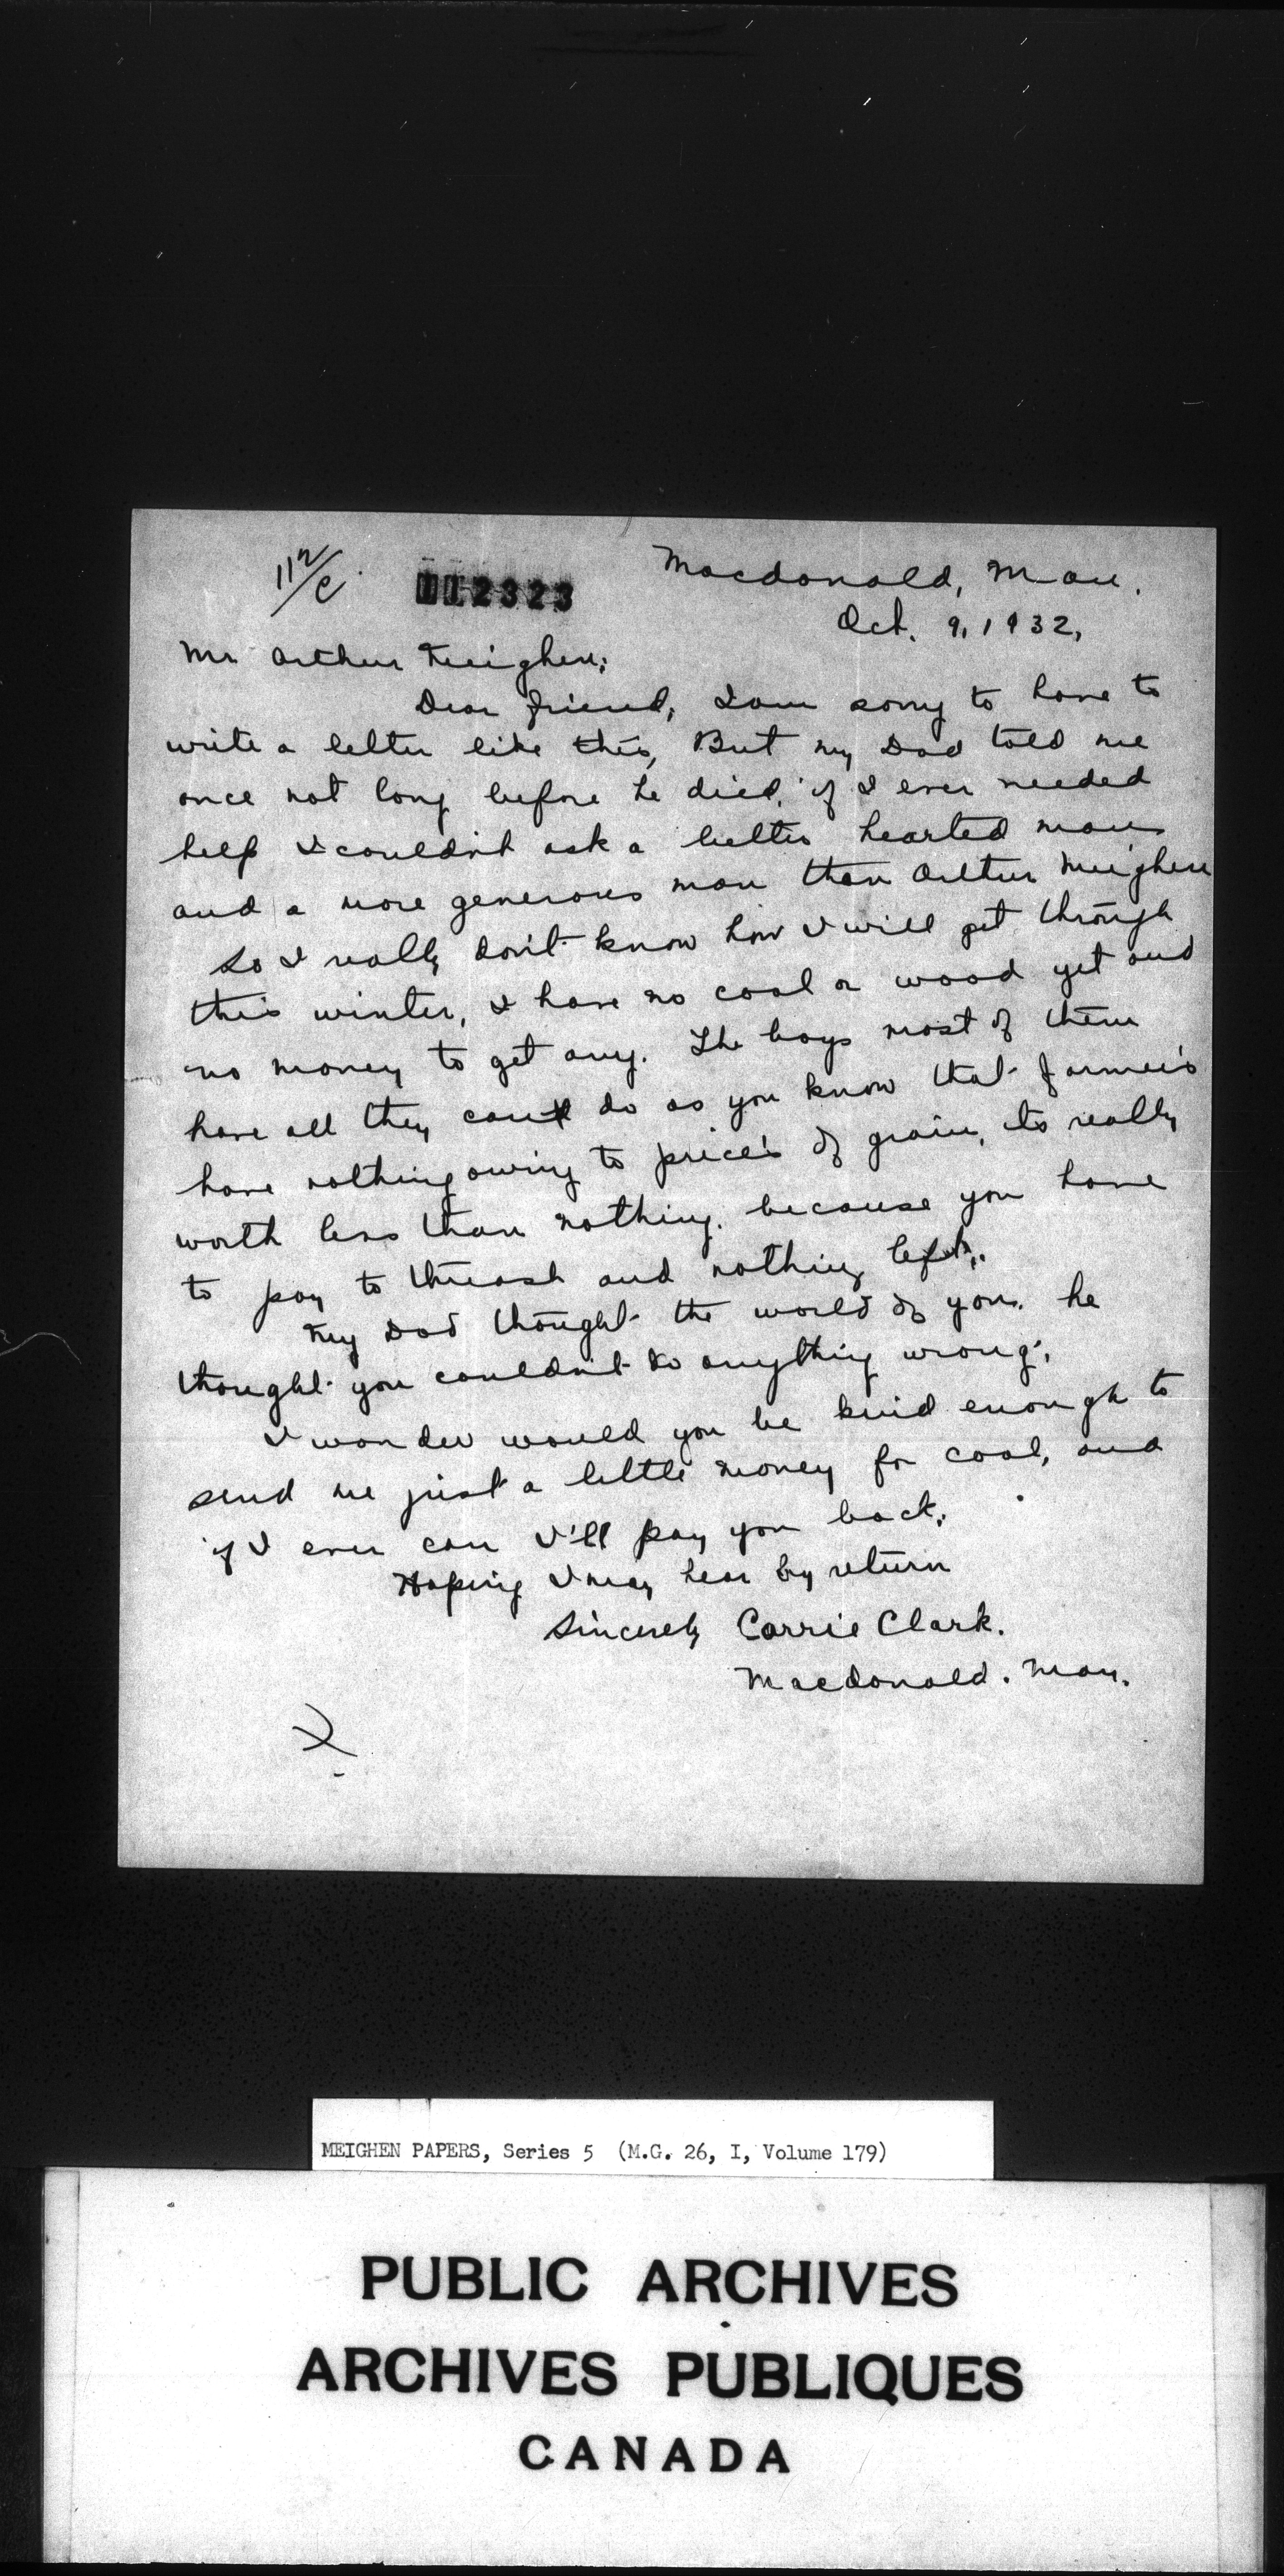 112/C.
112323
Macdonald, Man.
Oct. 9, 1932,
Mr Arthur Meighen;
Dear friend, I am sorry to have to
write a letter like this, But my Dad told me
once not long before he died, if I ever needed
help I couldn't ask a better hearted man
and a more generous man than Arthur Meighen
So I really don't know how I will get through
this winter, I have no coal or wood yet and
no money to get any. The boys most of them
have all they can do as you know that farmer's
have nothing owing to price's of grain, its really
worth less than nothing. because you have
to pay to thrash and nothing left.
My Dad thought the world of you. he
thought you couldn't do anything wrong,
I wonder would you be kind enough to
send me just a little money for coal, and
if I ever can I'll pay you back.
Hoping I may hear by return
Sincerely Carrie Clark.
Macdonald. Man.
MEIGHEN PAPERS, Series 5 (M.G. 26, I, Volume 179)
PUBLIC ARCHIVES
ARCHIVES PUBLIQUES
CANADA